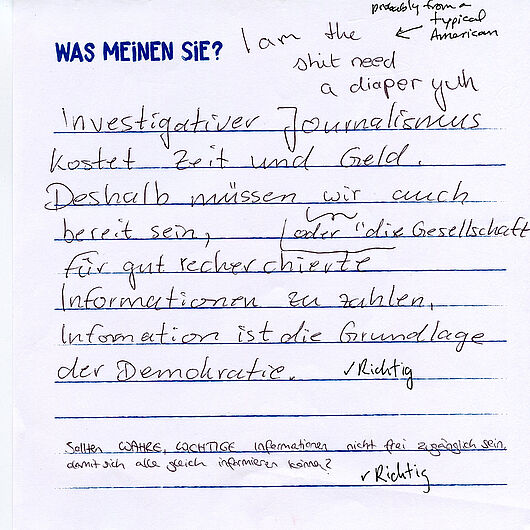 probably from a
typical
American
WAS MEINEN SIE? I am the
shit need
a diaper yuh
Investigativer Journalismus
kostet Zeit und Geld.
Deshalb müssen wir auch
bereit sein, oder "die Gesellschaft
für gut recherchierte
Informationen zu zahlen,
Information ist die Grundlage
der Demokratie. ✓Richtig
Sollten WAHRE, WICHTIGE Informationen nicht frei zugänglich sein,
damit sich alle gleich informieren können?
✓Richtig